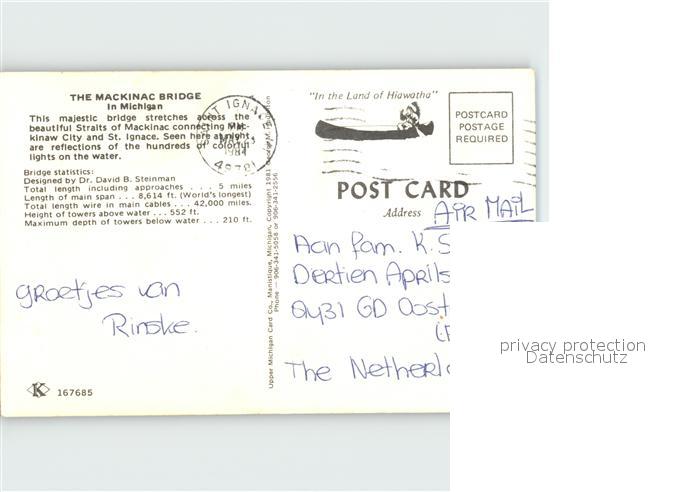 THE MACKINAC BRIDGE
In Michigan
This majestic bridge stretches across the
beautiful Straits of Mackinac connecting Mac-
kinaw City and St. Ignace. Seen here at night
are reflections of the hundreds of colorful
lights on the water.
Bridge statistics:
Designed by Dr. David B. Steinman
Total length including approaches . . . 5 miles
Length of main span . . . 8,614 ft. (World's longest)
Total length wire in main cables . . . 42,000 miles.
Height of towers above water . . . 552 ft.
Maximum depth of towers below water . . . 210 ft.
groetjes van
Rinske.
K 167685
Upper Michigan Card Co., Manistique, Michigan, Copyright 1981
Phone — 906-341-5058 or 906-341-2556
SAINT IGNACE
1984
49781
"In the Land of Hiawatha"
POSTCARD
POSTAGE
REQUIRED
POST CARD
Address
AIR MAIL
Aan fam. K. S
Dertien Aprils
GD Oost
The Netherl
privacy protection
Datenschutz